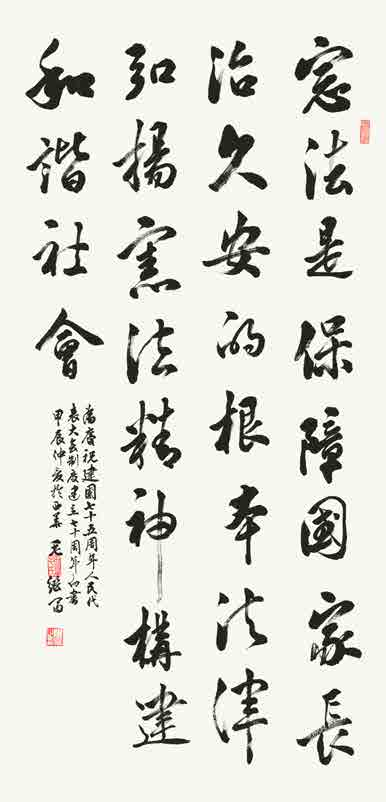 憲法是保障國家長
治久安的根本法律
弘揚憲法精神構建
和諧社會
為慶祝建國七十五周年人民代
表大會制度建立七十周年而書
甲辰仲夏於